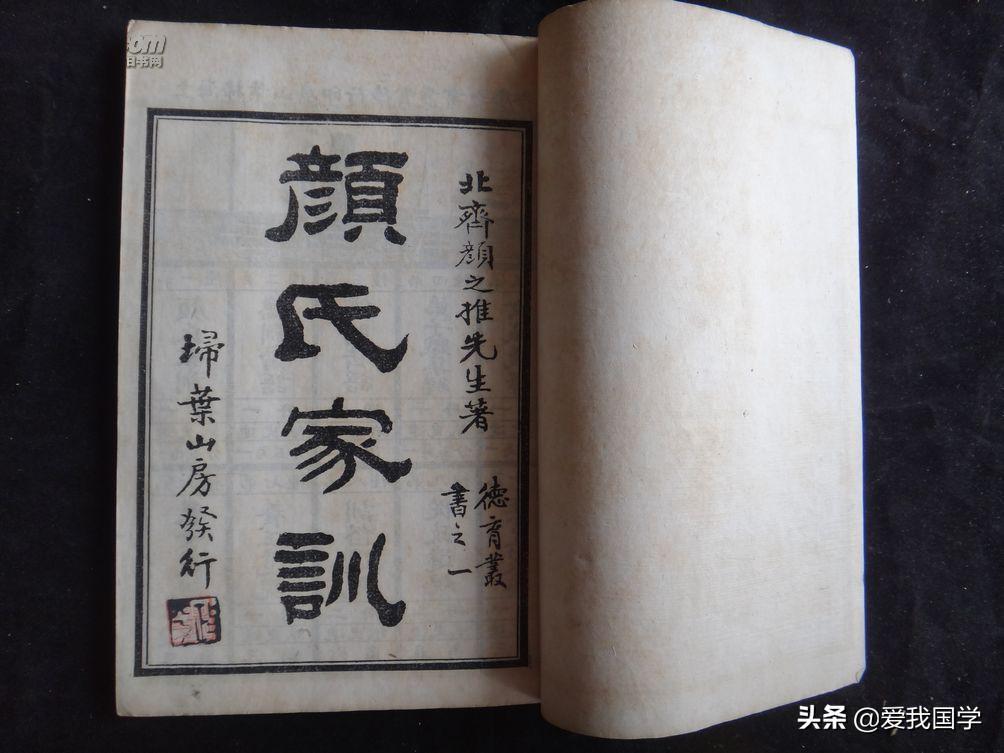 北齊顏之推先生著
德育叢
書之一
顏氏家訓
埽葉山房發行
com
旧书网
头条 @爱我国学